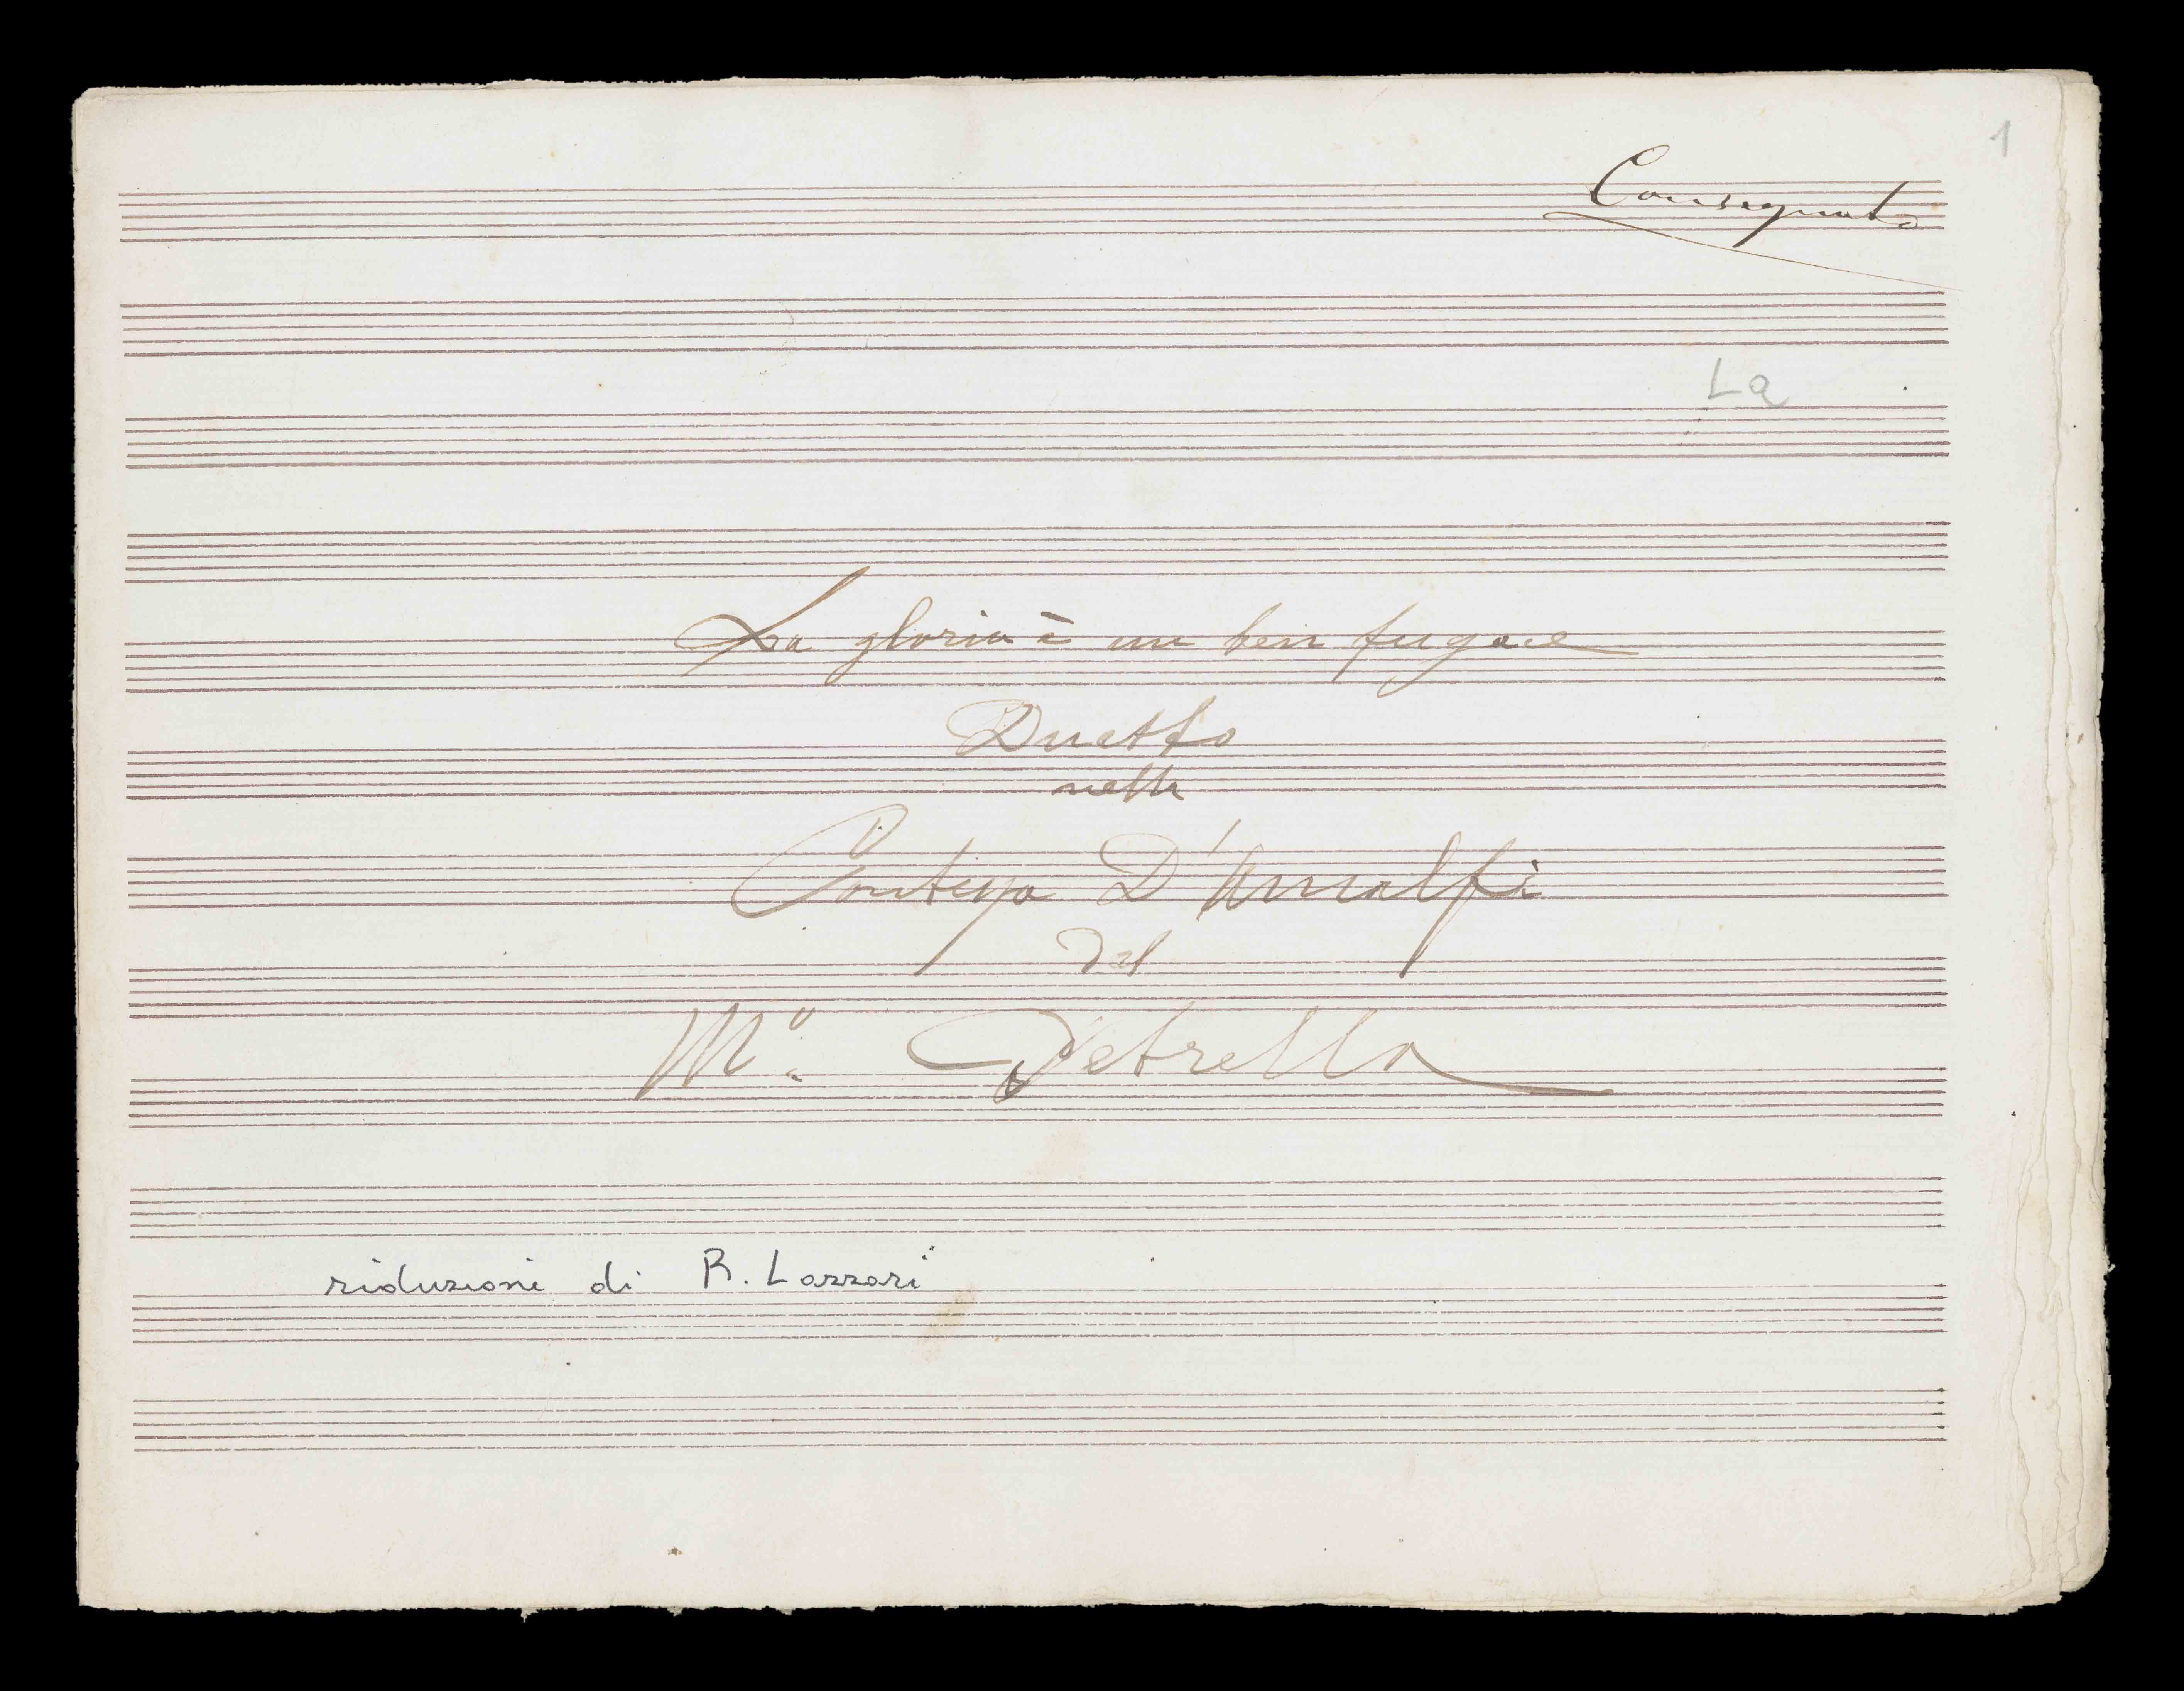 1
Consegnato
La
La gloria è un ben fugace
Duetto
nella
Contessa D'Amalfi
del
M.º Petrella
riduzione di R. Lazzari